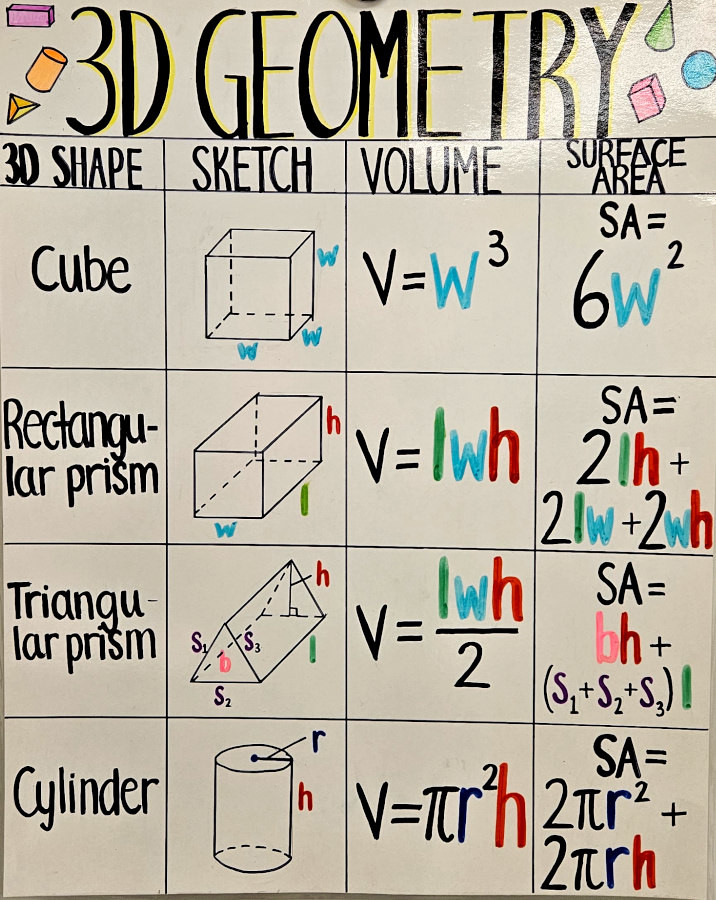 3D GEOMETRY
3D SHAPE
SKETCH
VOLUME
SURFACE
AREA
Cube
w
w
w
V=w³
SA=
6w²
Rectangu-
lar prism
h
l
w
V=lwh
SA=
2lh+
2lw+2wh
Triangu-
lar prism
h
S₁
S₃
b
l
S₂
V=lwh/2
SA=
bh+
(S₁+S₂+S₃)l
Cylinder
r
h
V=πr²h
SA=
2πr²+
2πrh